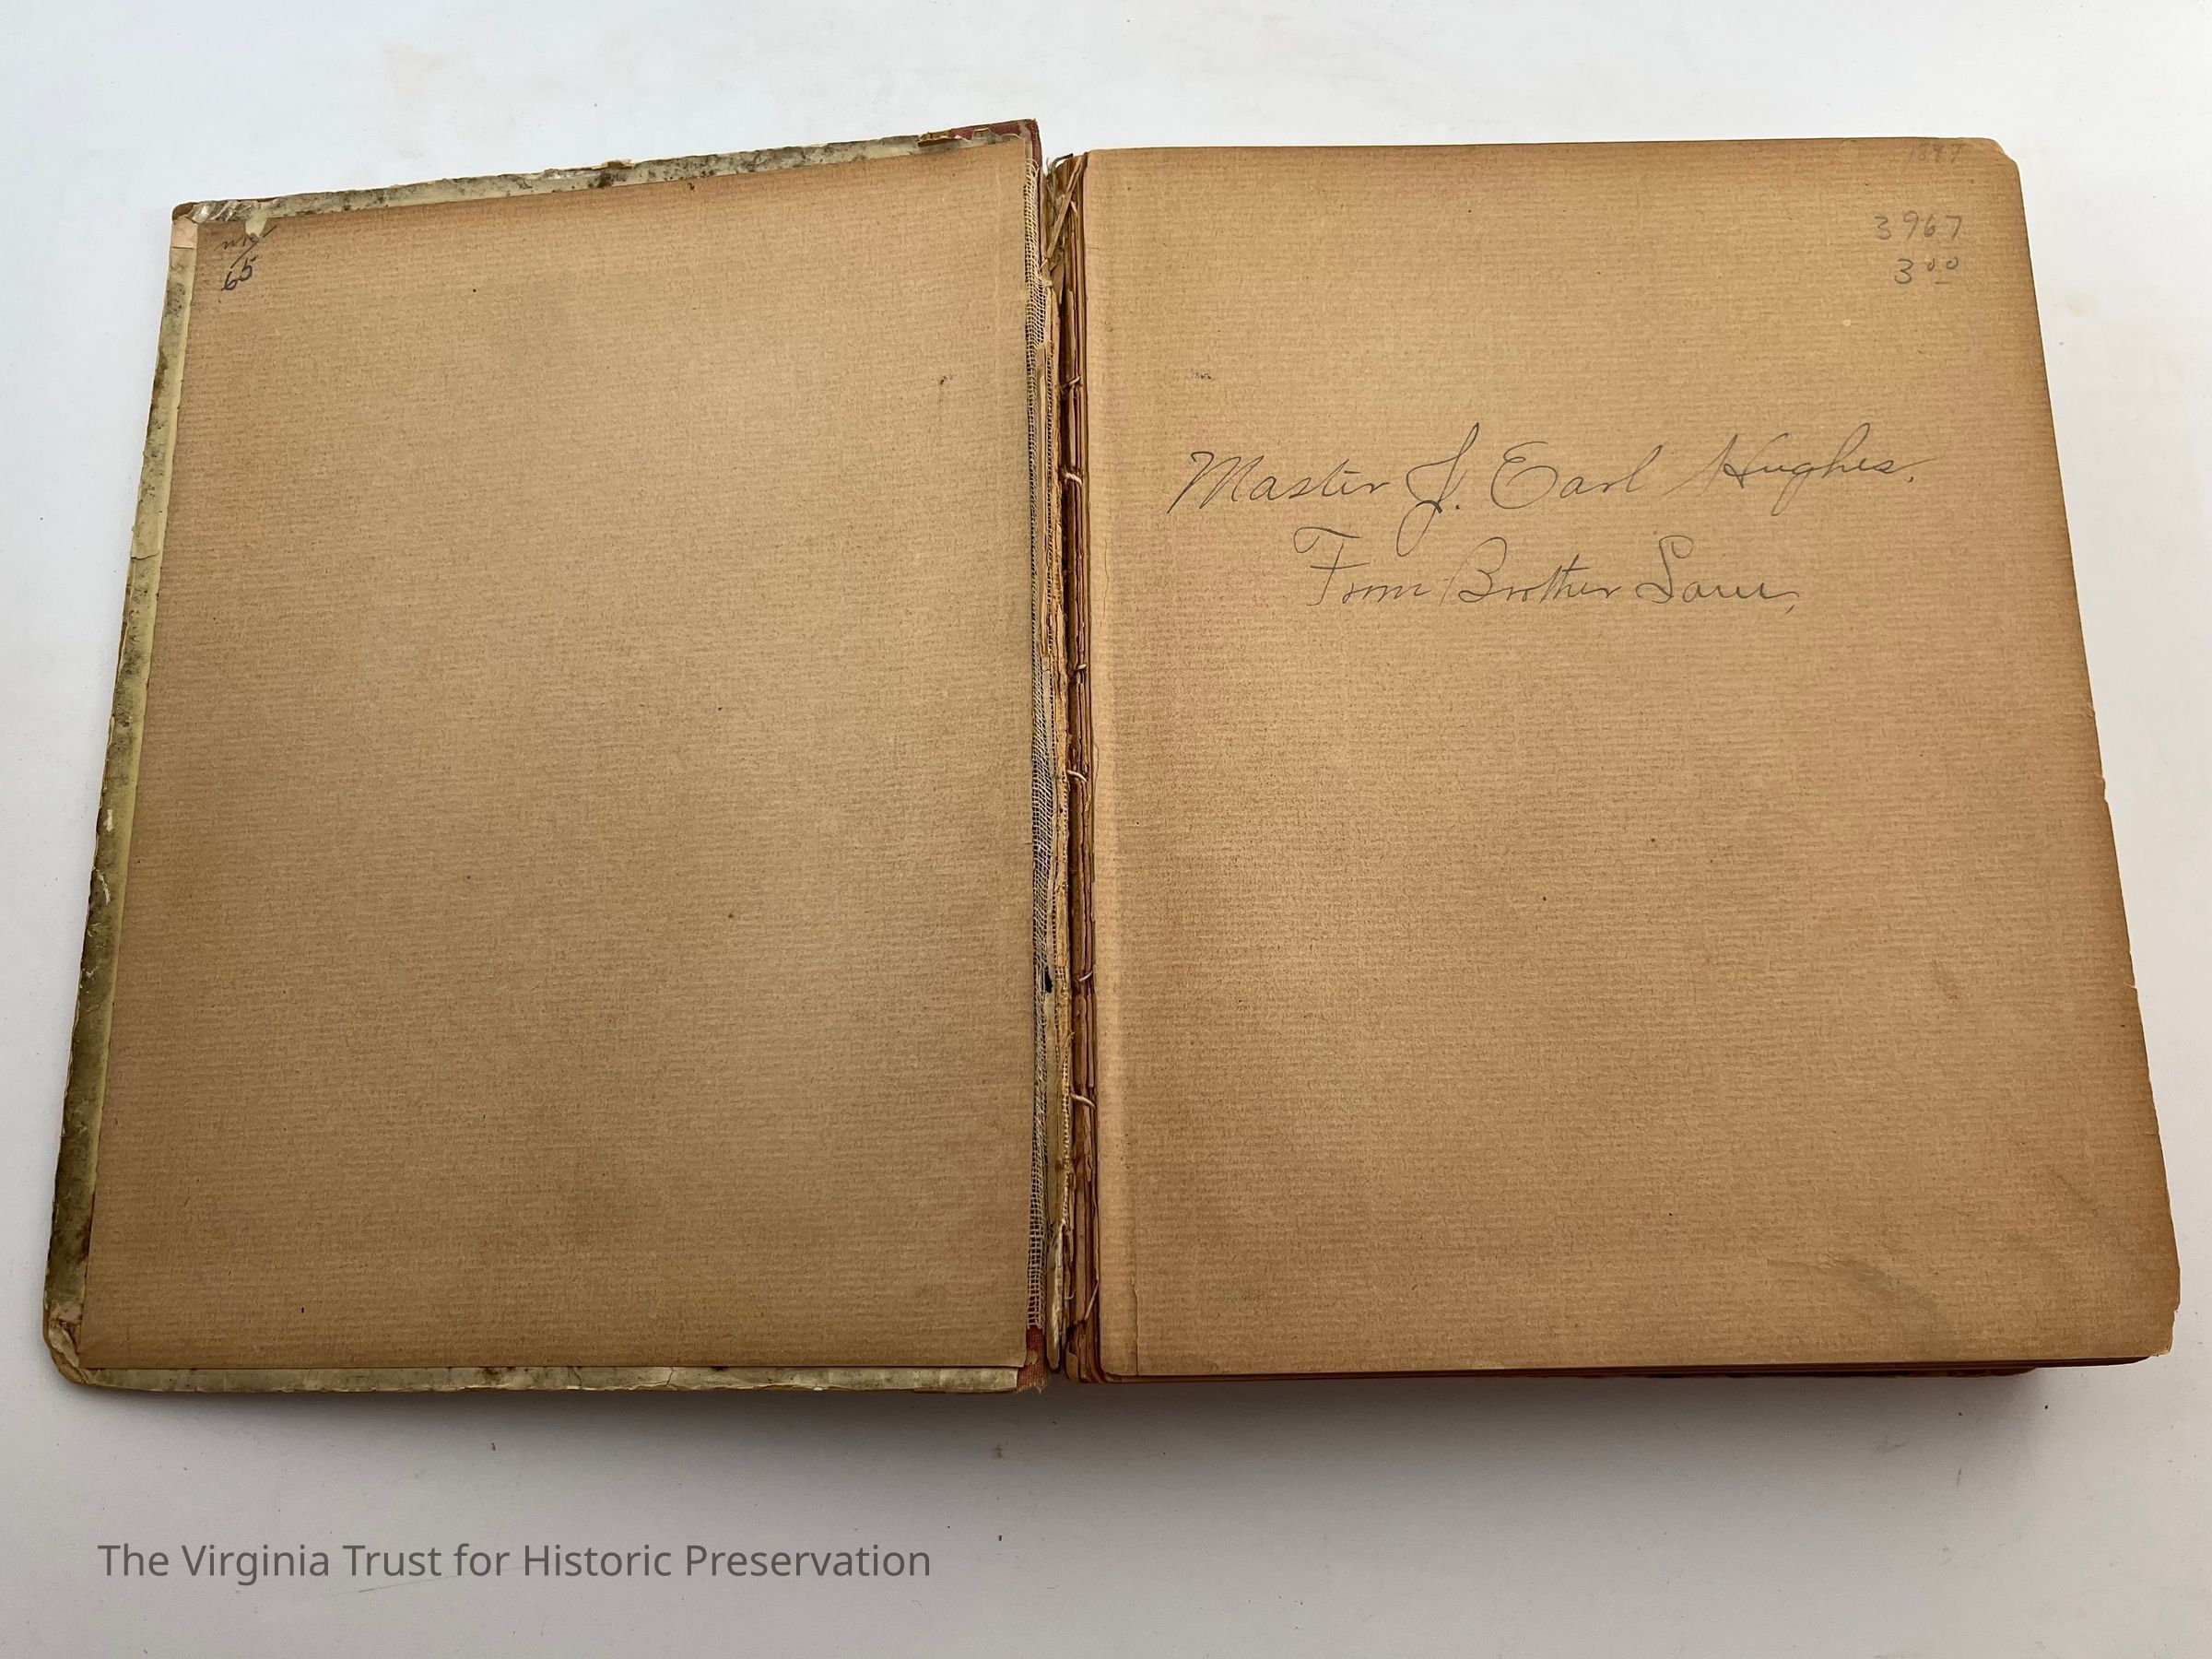 65
1897
3967
3 00
Master J. Earl Hughes.
From Brother Sam,
The Virginia Trust for Historic Preservation